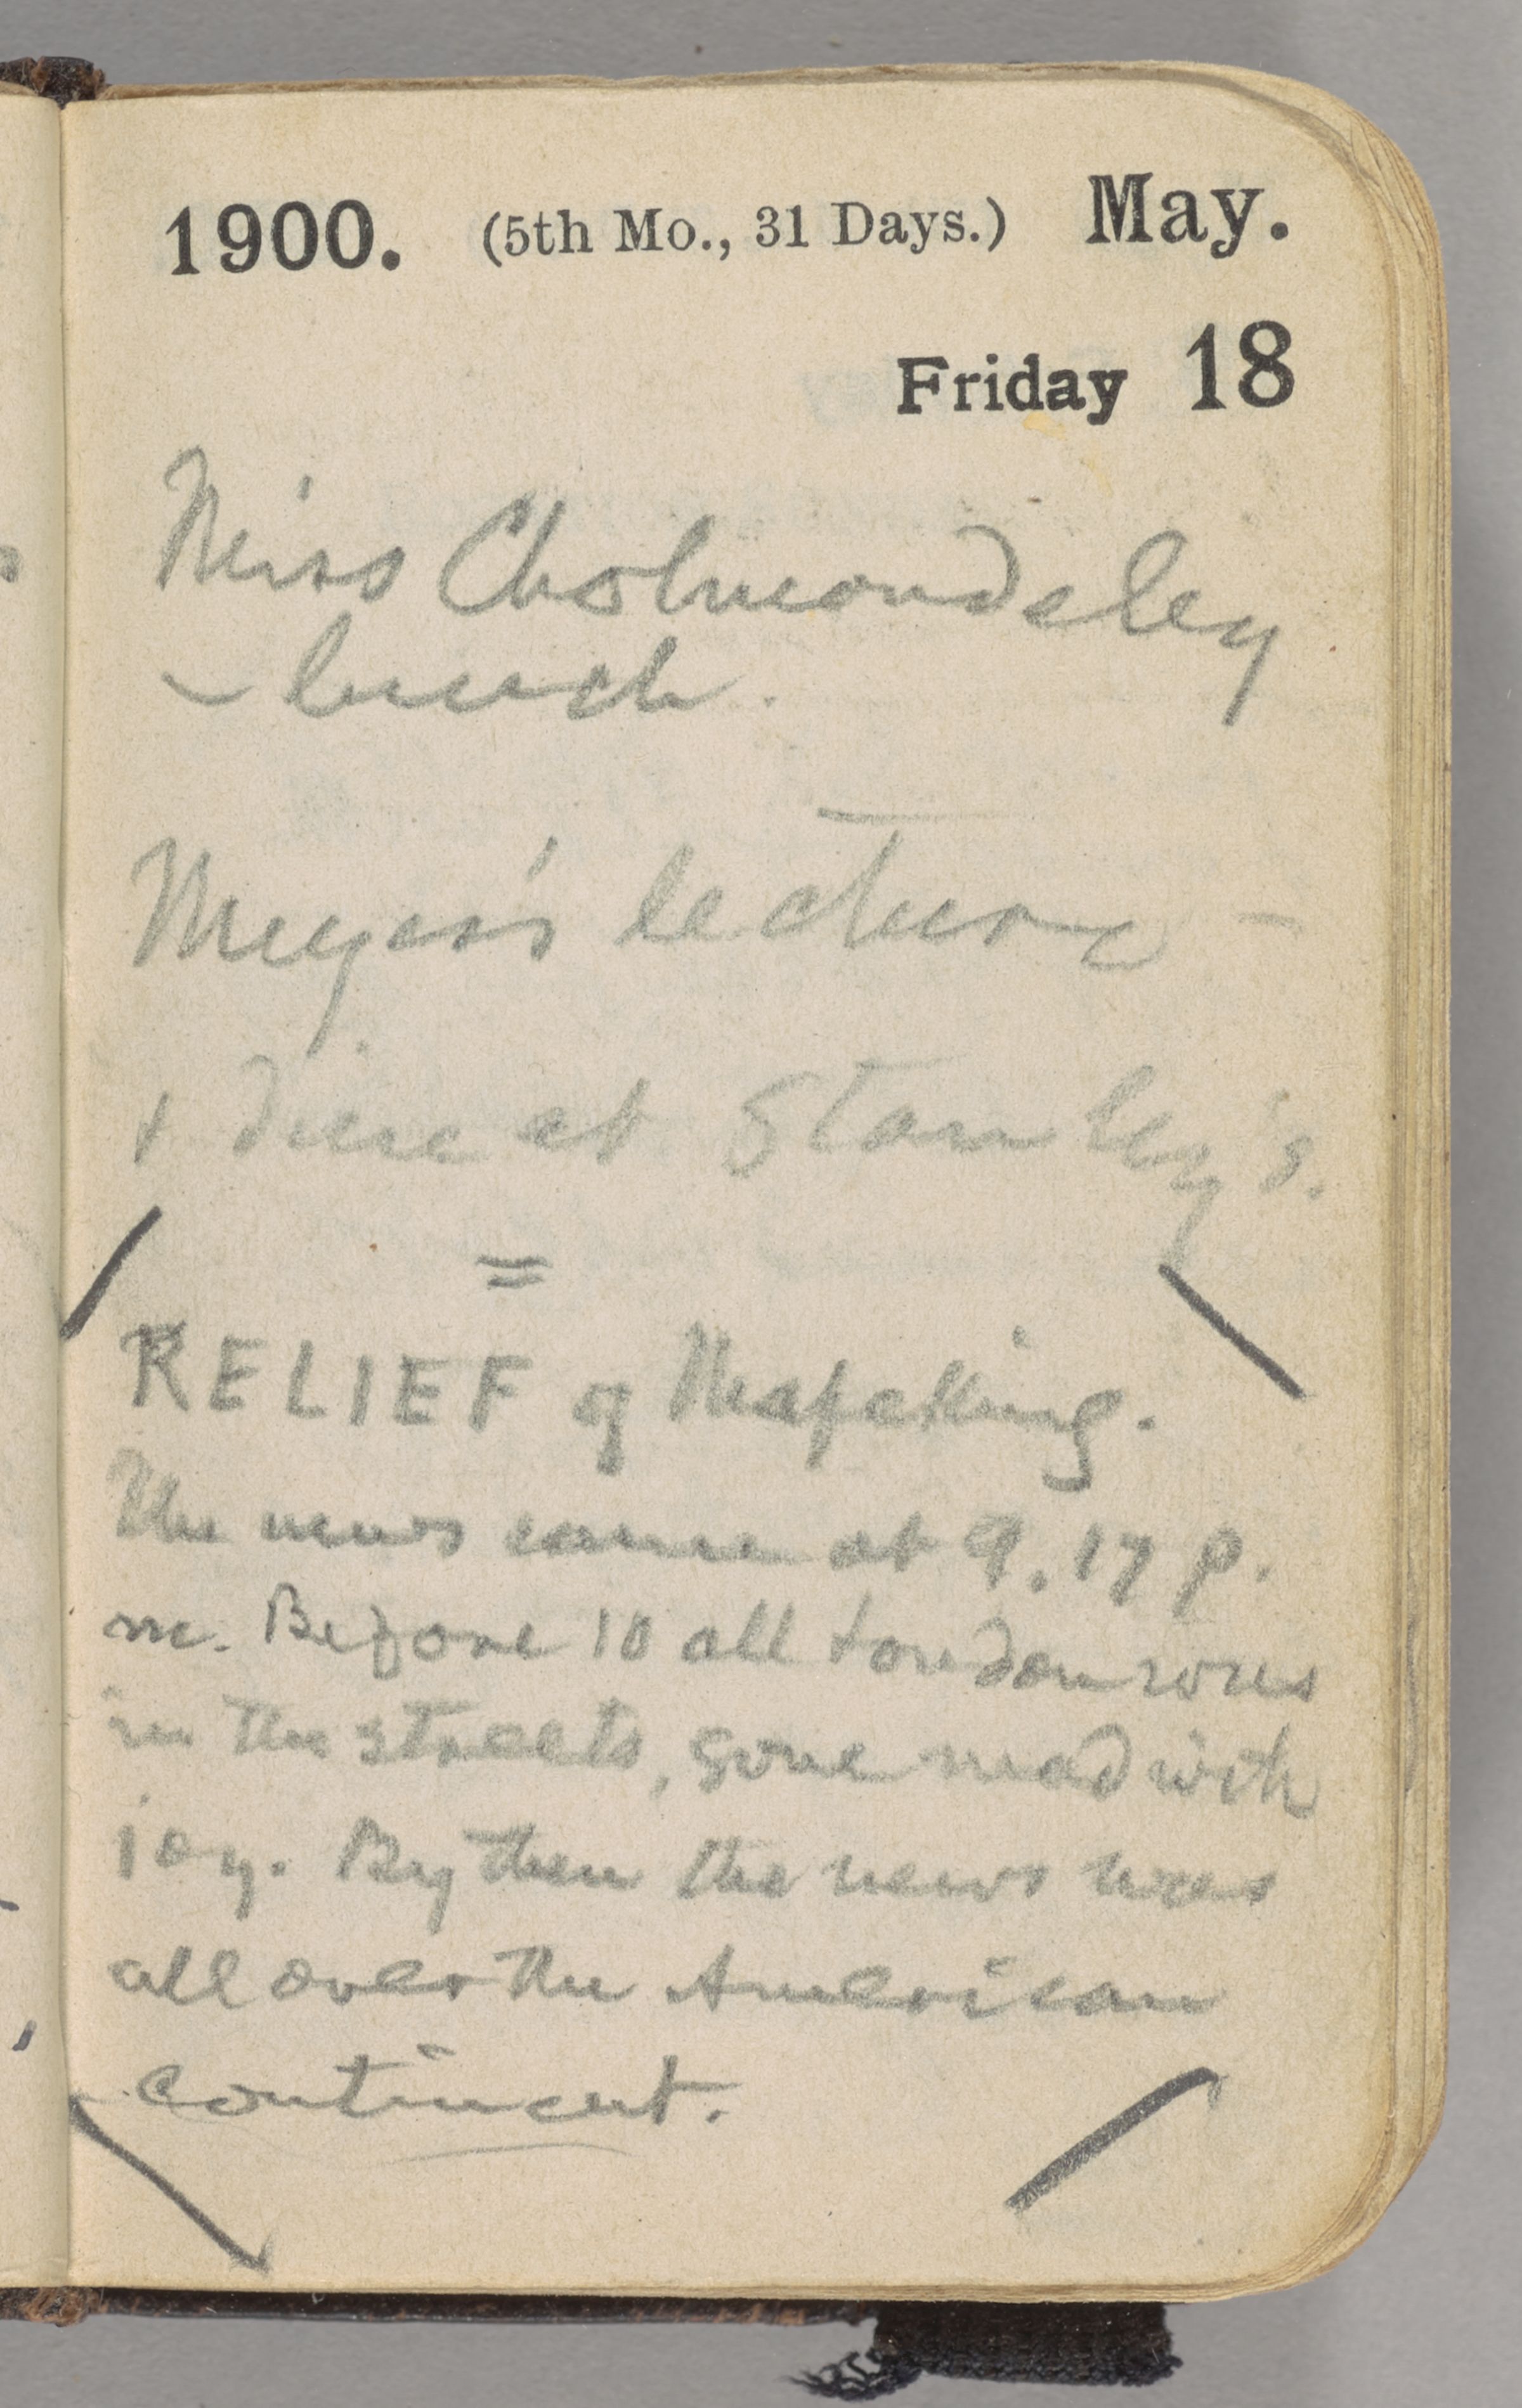 1900. (5th Mo., 31 Days.) May.
Friday 18
Miss Cholmondeley
– lunch.
Meyers's lecture –
+ dine at Stanley's.
=
RELIEF of Mafeking.
The news came at 9.17 p.
m. Before 10 all London was
in the streets, gone mad with
joy. By then the news was
all over the American
continent.